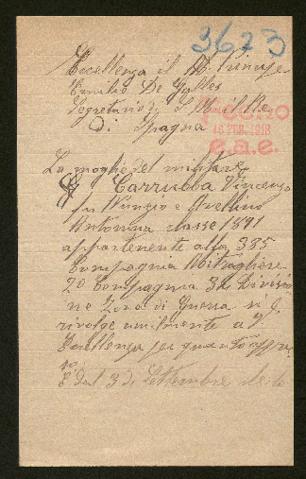 3623
Eccellenza il Principe
Emilio De
Segretario di S. M. il Re
Di Spagna
16 FEB. 1918
e.a.e.
La moglie del militare
Carrubba Vincenzo
fu Nunzio e Avellino
Antonina classe 1891
appartenente alla 385
Compagnia Mitragliere
2a Compagnia 3a Divisio
ne Zona di Guerra si
rivolge umilmente a V.
Eccellenza per quanto
E' dal 3 di Settembre